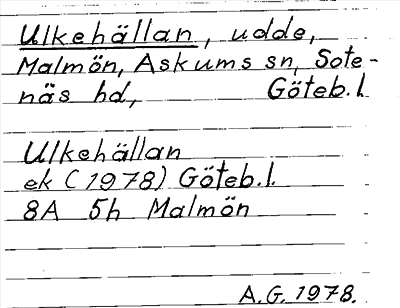 Ulkehällan, udde,
Malmön, Askums sn, Sote-
näs hd, Göteb.l.
Ulkehällan
ek (1978) Göteb.l.
8A 5h Malmön
A.G. 1978.